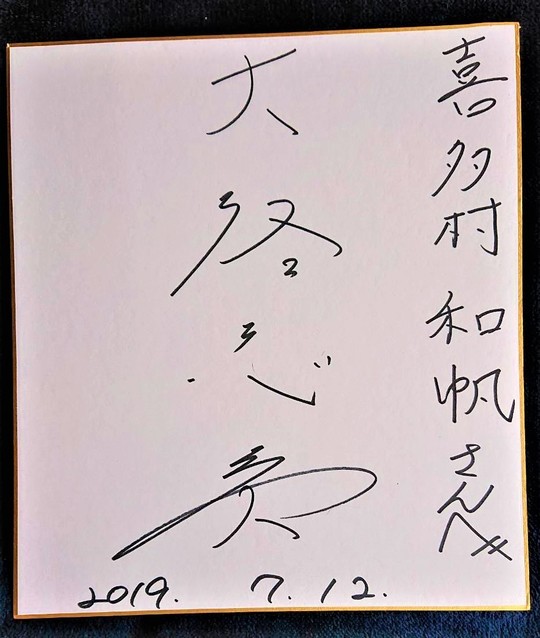 喜多村 和帆さんへ
大
2019. 7. 12.